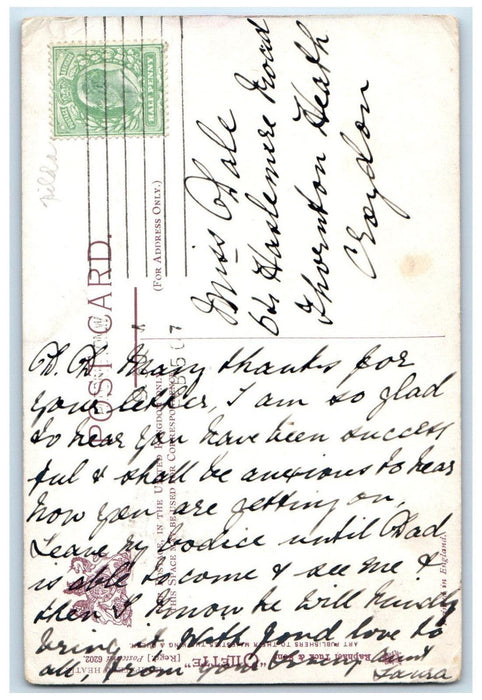 HALF PENNY
POST CARD.
(FOR ADDRESS ONLY.)
Miss Dale
64 Haslemere Road
Thornton Heath
Croydon
Many thanks for
your letter, I am so glad
to hear you have been success
ful & shall be anxious to hear
how you are getting on,
Leave my bodice until Dad
is able to come & see me &
then I know he will kindly
bring it. With fond love to
all from your loving Aunt
Laura
IN THE UNITED KINGDOM ONLY
THIS SPACE MAY BE USED FOR CORRESPONDENCE
Raphael Tuck & Sons
"OILETTE"
[Regd.] Postcard 6202.
ART PUBLISHERS TO THEIR MAJESTIES THE KING &
in England.